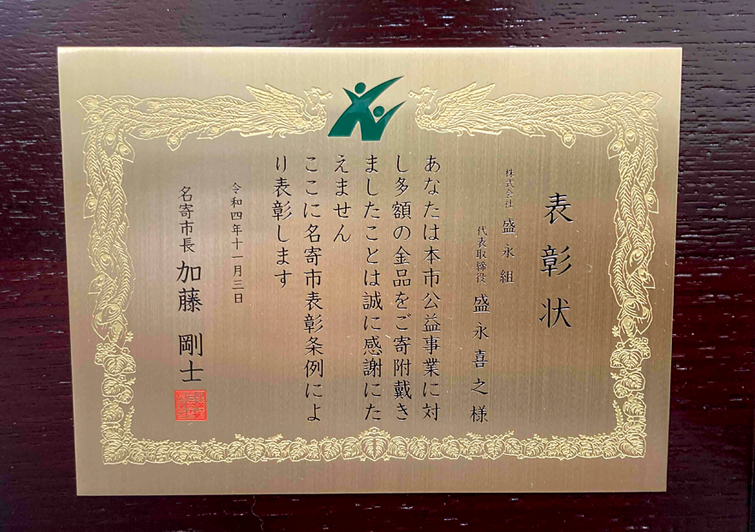 表彰状
株式会社 盛永組
代表取締役 盛永喜之様
あなたは本市公益事業に対
し多額の金品をご寄附戴き
ましたことは誠に感謝にた
えません
ここに名寄市表彰条例によ
り表彰します
令和四年十一月三日
名寄市長 加藤剛士